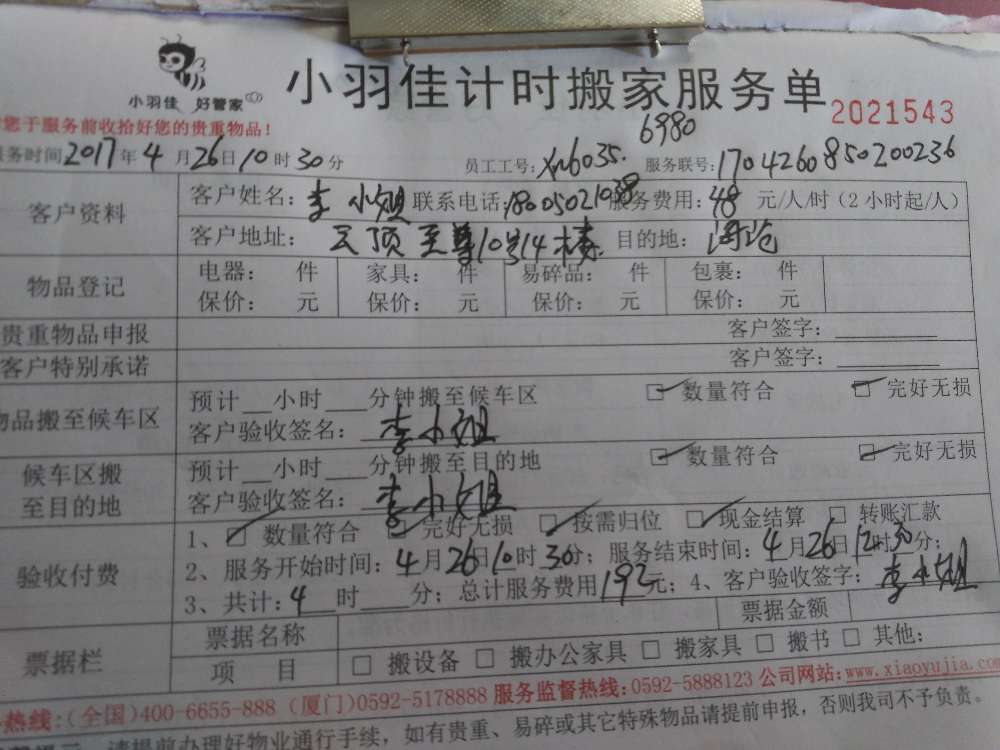 小羽佳计时搬家服务单
小羽佳 好管家
2021543
您于服务前收拾好您的贵重物品!
6980
服务时间2017年4月26日10时30分 员工工号: xn6035. 服务联号:1704260850200236
客户资料
客户姓名: 李小姐 联系电话:18005021038 服务费用:48 元/人/时(2小时起/人)
客户地址: 云顶至尊10号14楼. 目的地:
物品登记
电器: 件 家具: 件 易碎品: 件 包裹: 件
保价: 元 保价: 元 保价: 元 保价: 元
贵重物品申报 客户签字:
客户特别承诺 客户签字:
物品搬至候车区
预计__小时___分钟搬至候车区 数量符合 完好无损
客户验收签名: 李小姐
候车区搬
至目的地
预计__小时___分钟搬至目的地 数量符合 完好无损
客户验收签名: 李小姐
验收付费
1、 数量符合 完好无损 按需归位 现金结算 转账汇款
2、服务开始时间:4月26日10时30分; 服务结束时间:4月26日12时30分;
3、共计:4时___分; 总计服务费用192元; 4、客户验收签字: 李小姐
票据栏
票据名称 票据金额
项 目 搬设备 搬办公家具 搬家具 搬书 其他:
热线:(全国)400-6655-888 (厦门)0592-5178888 服务监督热线:0592-5888123 公司网站:www.xiaoyujia.co
请提前办理好物业通行手续, 如有贵重、易碎或其它特殊物品请提前申报, 否则我司不予负责。